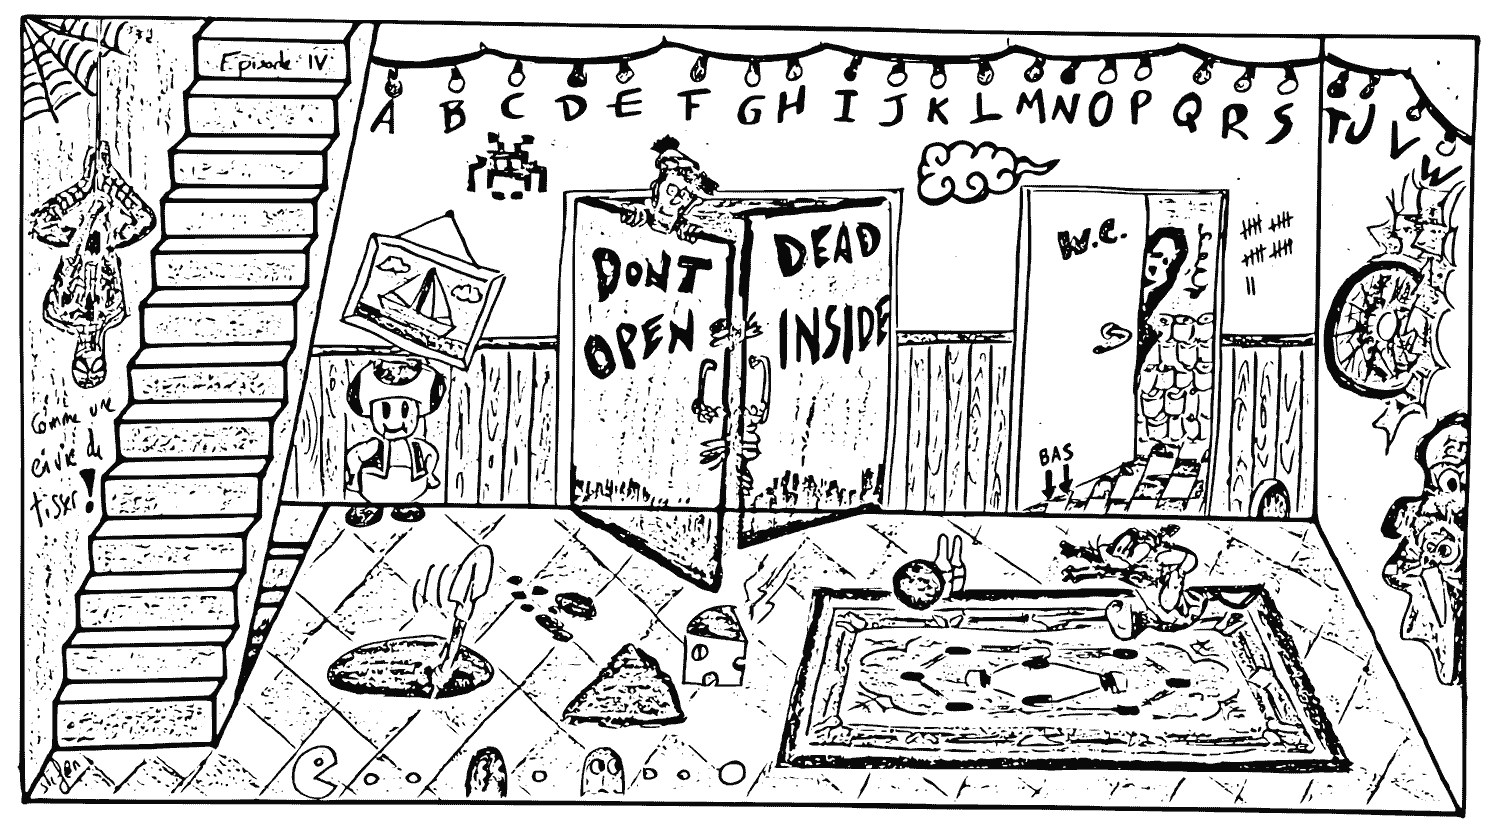 Episode IV
A B C D E F G H I J K L M N O P Q R S T U V W
DONT
OPEN
DEAD
INSIDE
W.C.
BAS
Comme une
envie de
tisser!